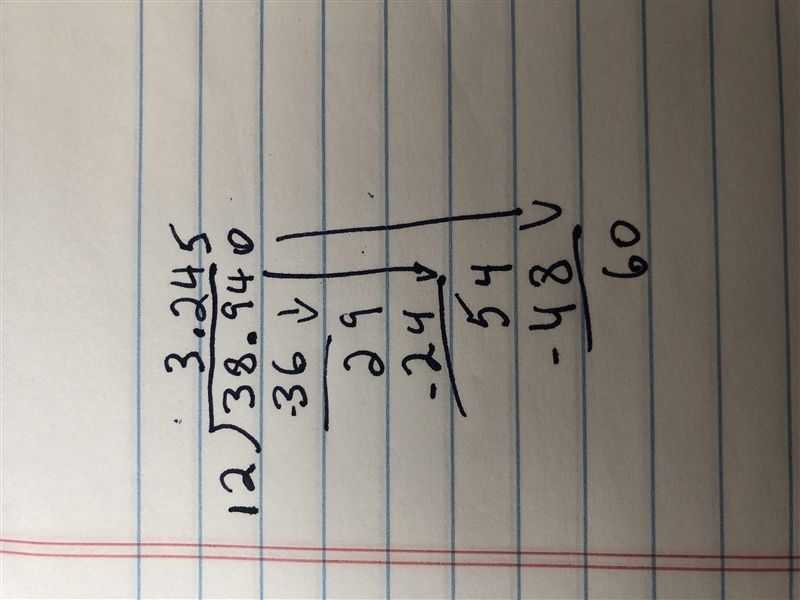 3.245
12)38.940
-36
29
-24
54
-48
60